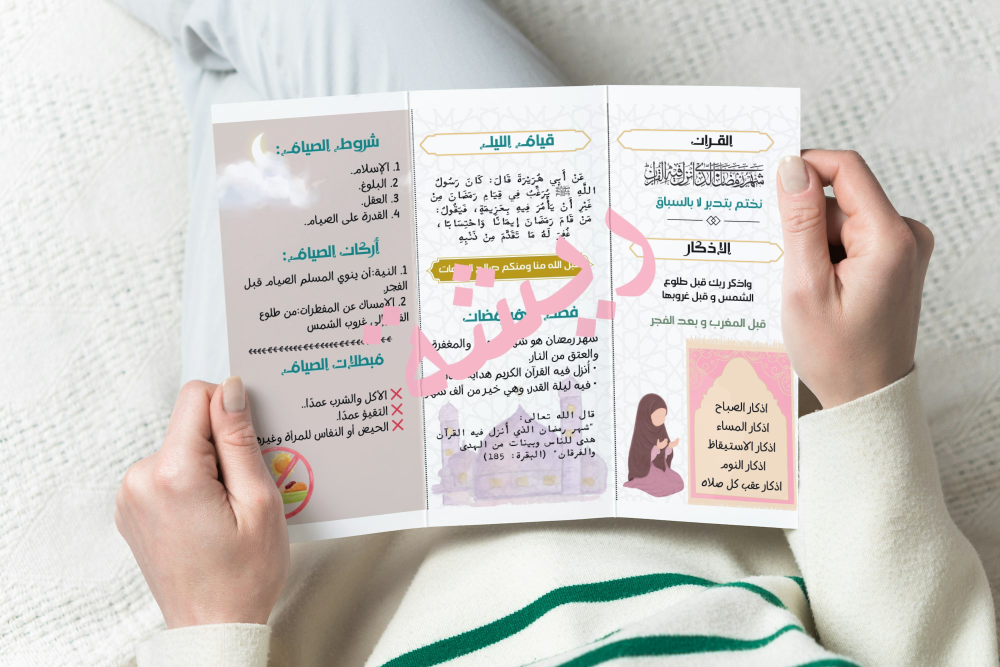 القرآن
شهر رمضان الذي أنزل فيه القرآن
نختم بتدبر لا بالسباق
الاذكار
واذكر ربك قبل طلوع
الشمس و قبل غروبها
قبل المغرب و بعد الفجر
اذكار الصباح
اذكار المساء
اذكار الاستيقاظ
اذكار النوم
اذكار عقب كل صلاه
قيام الليل
عَنْ أَبِي هُرَيْرَةَ قَالَ: كَانَ رَسُولُ
اللَّهِ ﷺ يُرَغِّبُ فِي قِيَامِ رَمَضَانَ مِنْ
غَيْرِ أَنْ يَأْمُرَ فِيهِ بِعَزِيمَةٍ، فَيَقُولُ:
مَنْ قَامَ رَمَضَانَ إِيمَانًا وَاحْتِسَابًا،
غُفِرَ لَهُ مَا تَقَدَّمَ مِنْ ذَنْبِهِ
الله منا ومنكم
رمضان
شهر رمضان هو والمغفرة
والعتق من النار.
• أنزل فيه القرآن الكريم هداية
• فيه ليلة القدر، وهي خير من ألف
قال الله تعالى:
"شهر رمضان الذي أنزل فيه القرآن
هدى للناس وبينات من الهدى
والفرقان" (البقرة: 185)
شروط الصيام:
1. الإسلام.
2. البلوغ.
3. العقل.
4. القدرة على الصيام.
أركان الصيام:
1. النية:أن ينوي المسلم الصيام قبل
الفجر.
2. الامساك عن المفطرات:من طلوع
إلى غروب الشمس
مبطلات الصيام
الأكل والشرب عمدًا..
التقيؤ عمدًا.
الحيض او النفاس للمرأة
ريشة